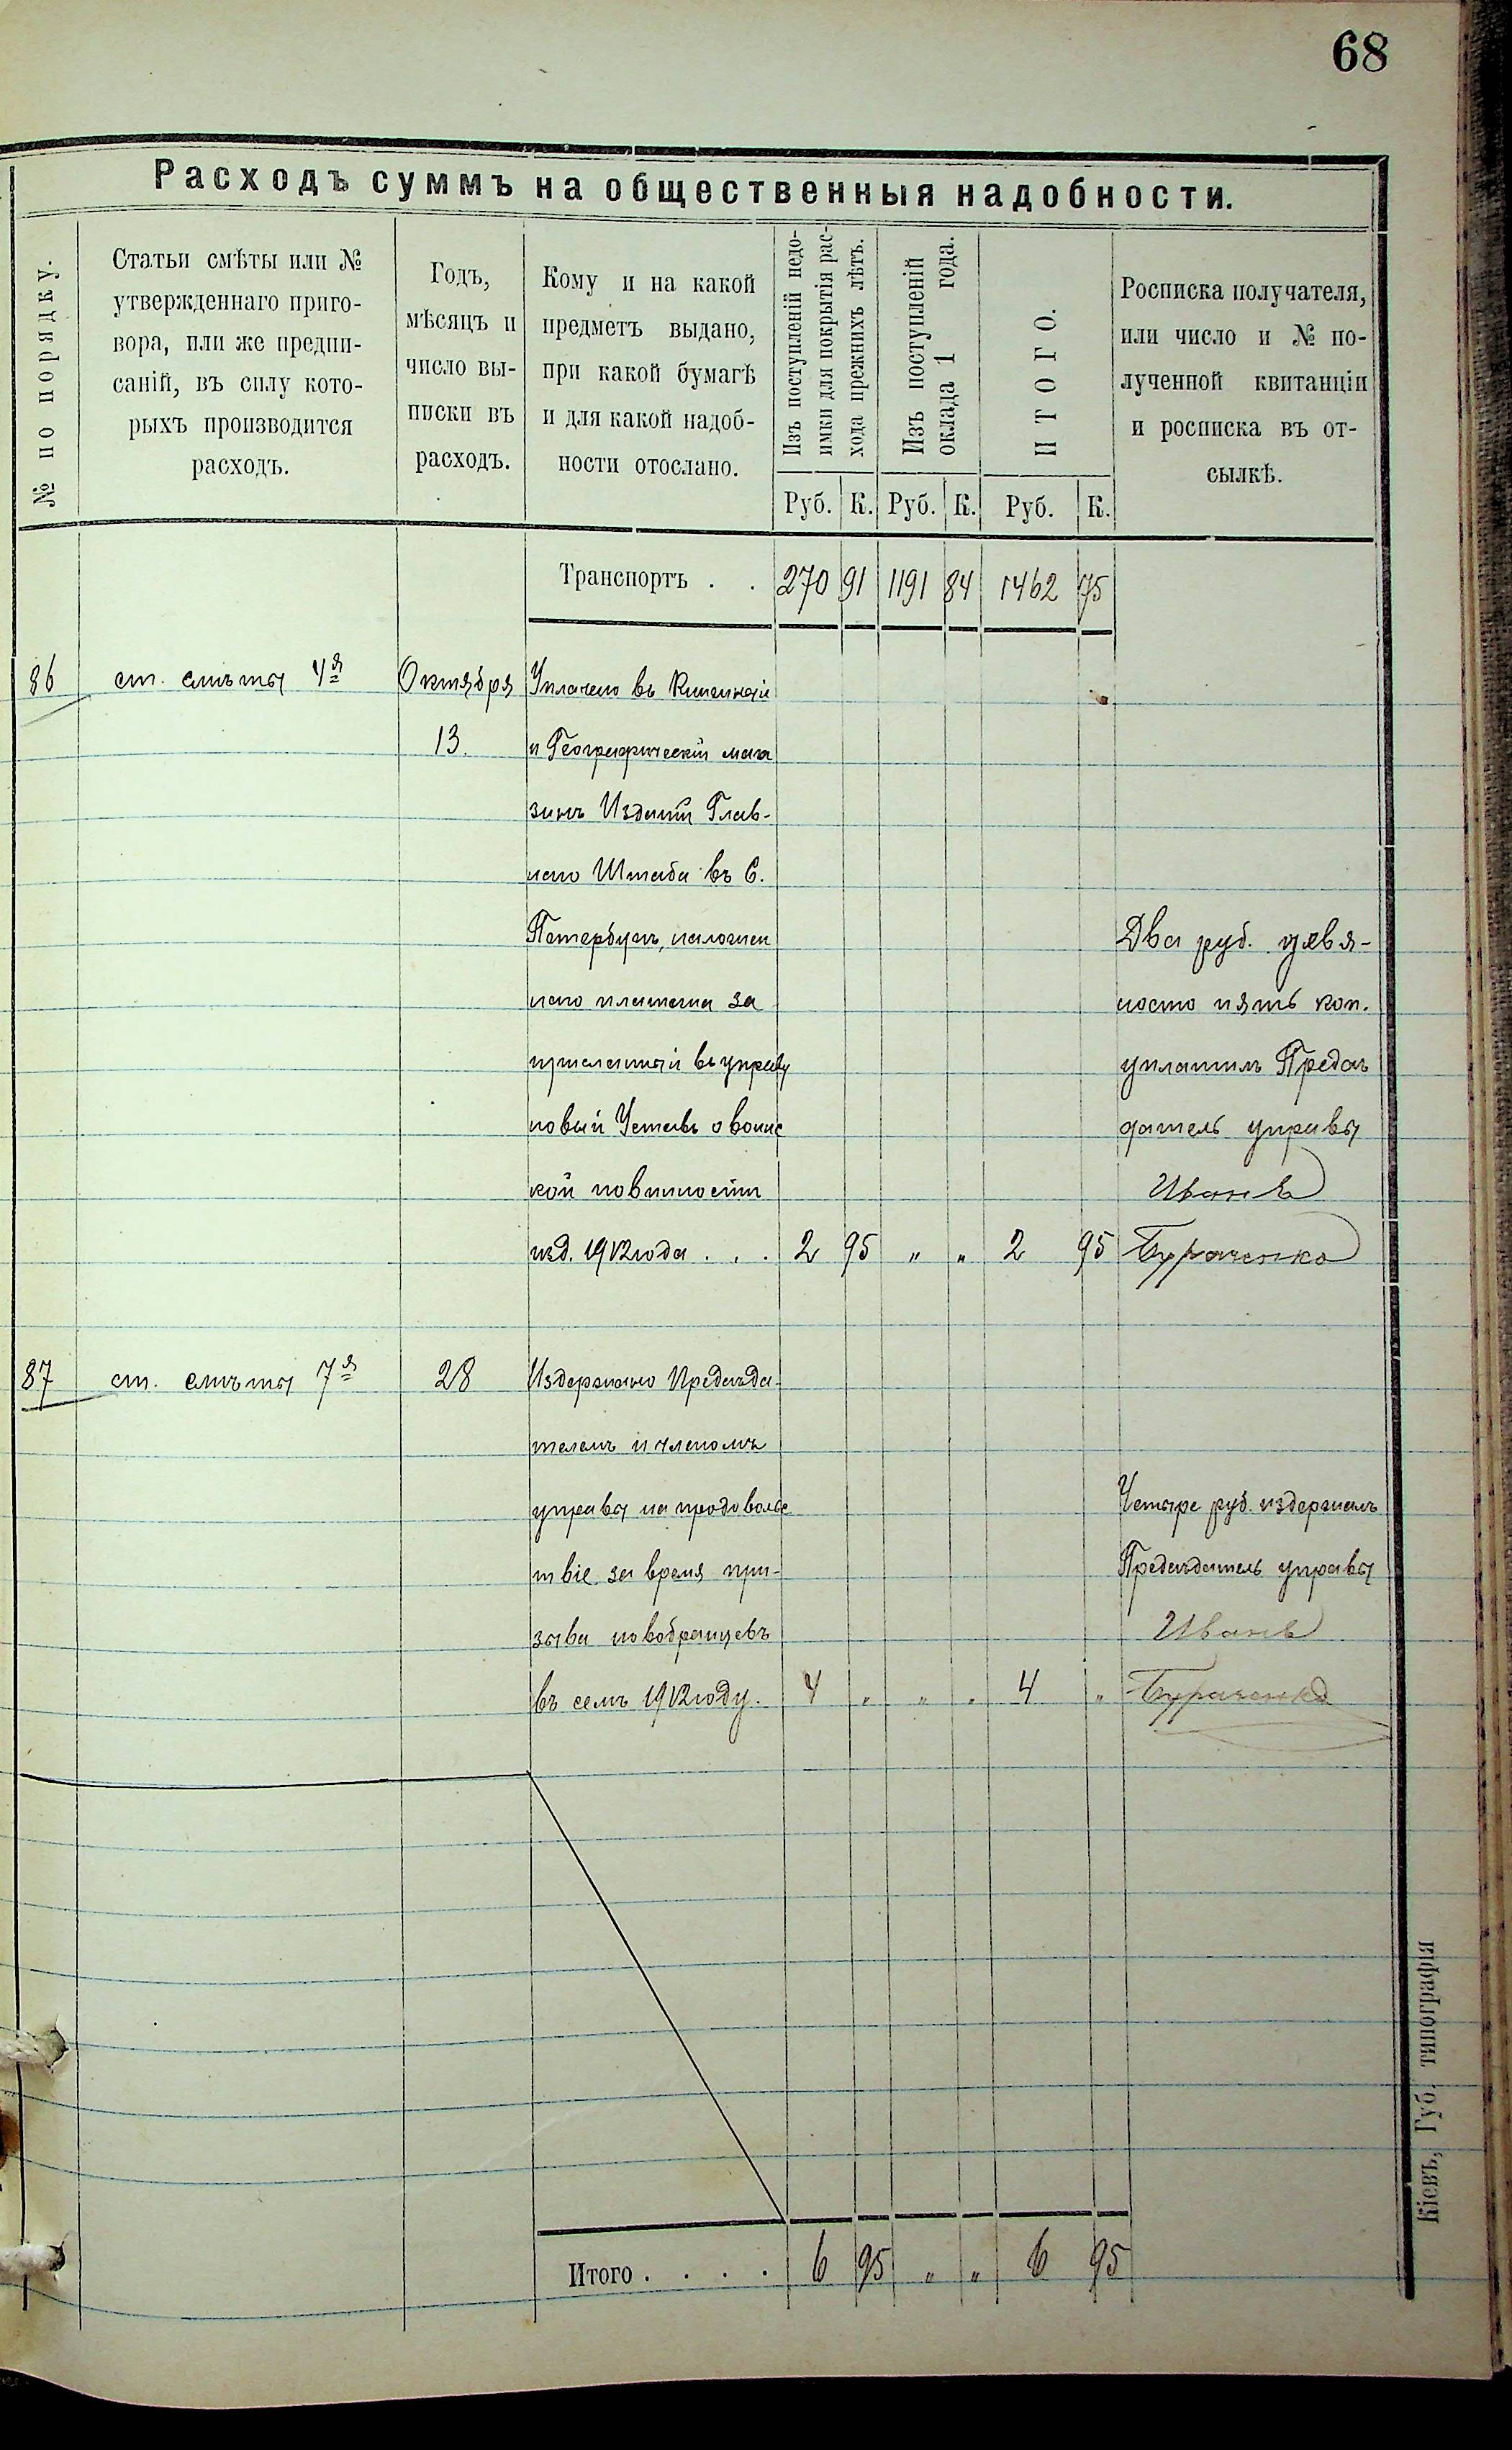 68
Расходъ суммъ на общественныя надобности.
№ по порядку.
Статьи смѣты или №
утвержденнаго приго-
вора, или же предпи-
саній, въ силу кото-
рыхъ производится
расходъ.
Годъ,
мѣсяцъ и
число вы-
писки въ
расходъ.
Кому и на какой
предметъ выдано,
при какой бумагѣ
и для какой надоб-
ности отослано.
Изъ поступленій недо-
имки для покрытія рас-
хода прежнихъ лѣтъ.
Изъ поступленій
оклада 1 года.
ИТОГО.
Росписка получателя,
или число и № по-
лученной квитанціи
и росписка въ от-
сылкѣ.
Руб. К. Руб. К. Руб. К.
Транспортъ . . 270 91 1191 84 1462 75
86 ст. смѣты 4я Октября Уплачено въ Книжный
13. и Географическій мага
зинъ Изданій Глав-
наго Штаба въ С.
Петербургѣ, наложен
наго платежа за
присланный въ управу
новый Уставъ о воинс
кой повинности
изд. 1912 года . . . 2 95 „ „ 2 95
Два руб. девя-
носто пять коп.
уплатилъ Предсѣ
датель управы
Иванъ
Бураченко
87 ст. смѣты 7я 28 Издержано Предсѣда-
телемъ и членомъ
управы на продовольс
твіе за время при-
зыва новобранцевъ
въ семъ 1912 году. 4 „ „ „ 4 „
Четыре руб. издержалъ
Предсѣдатель управы
Иванъ
Бураченко
Итого . . . . 6 95 „ „ 6 95
Кіевъ, Губ. типографія